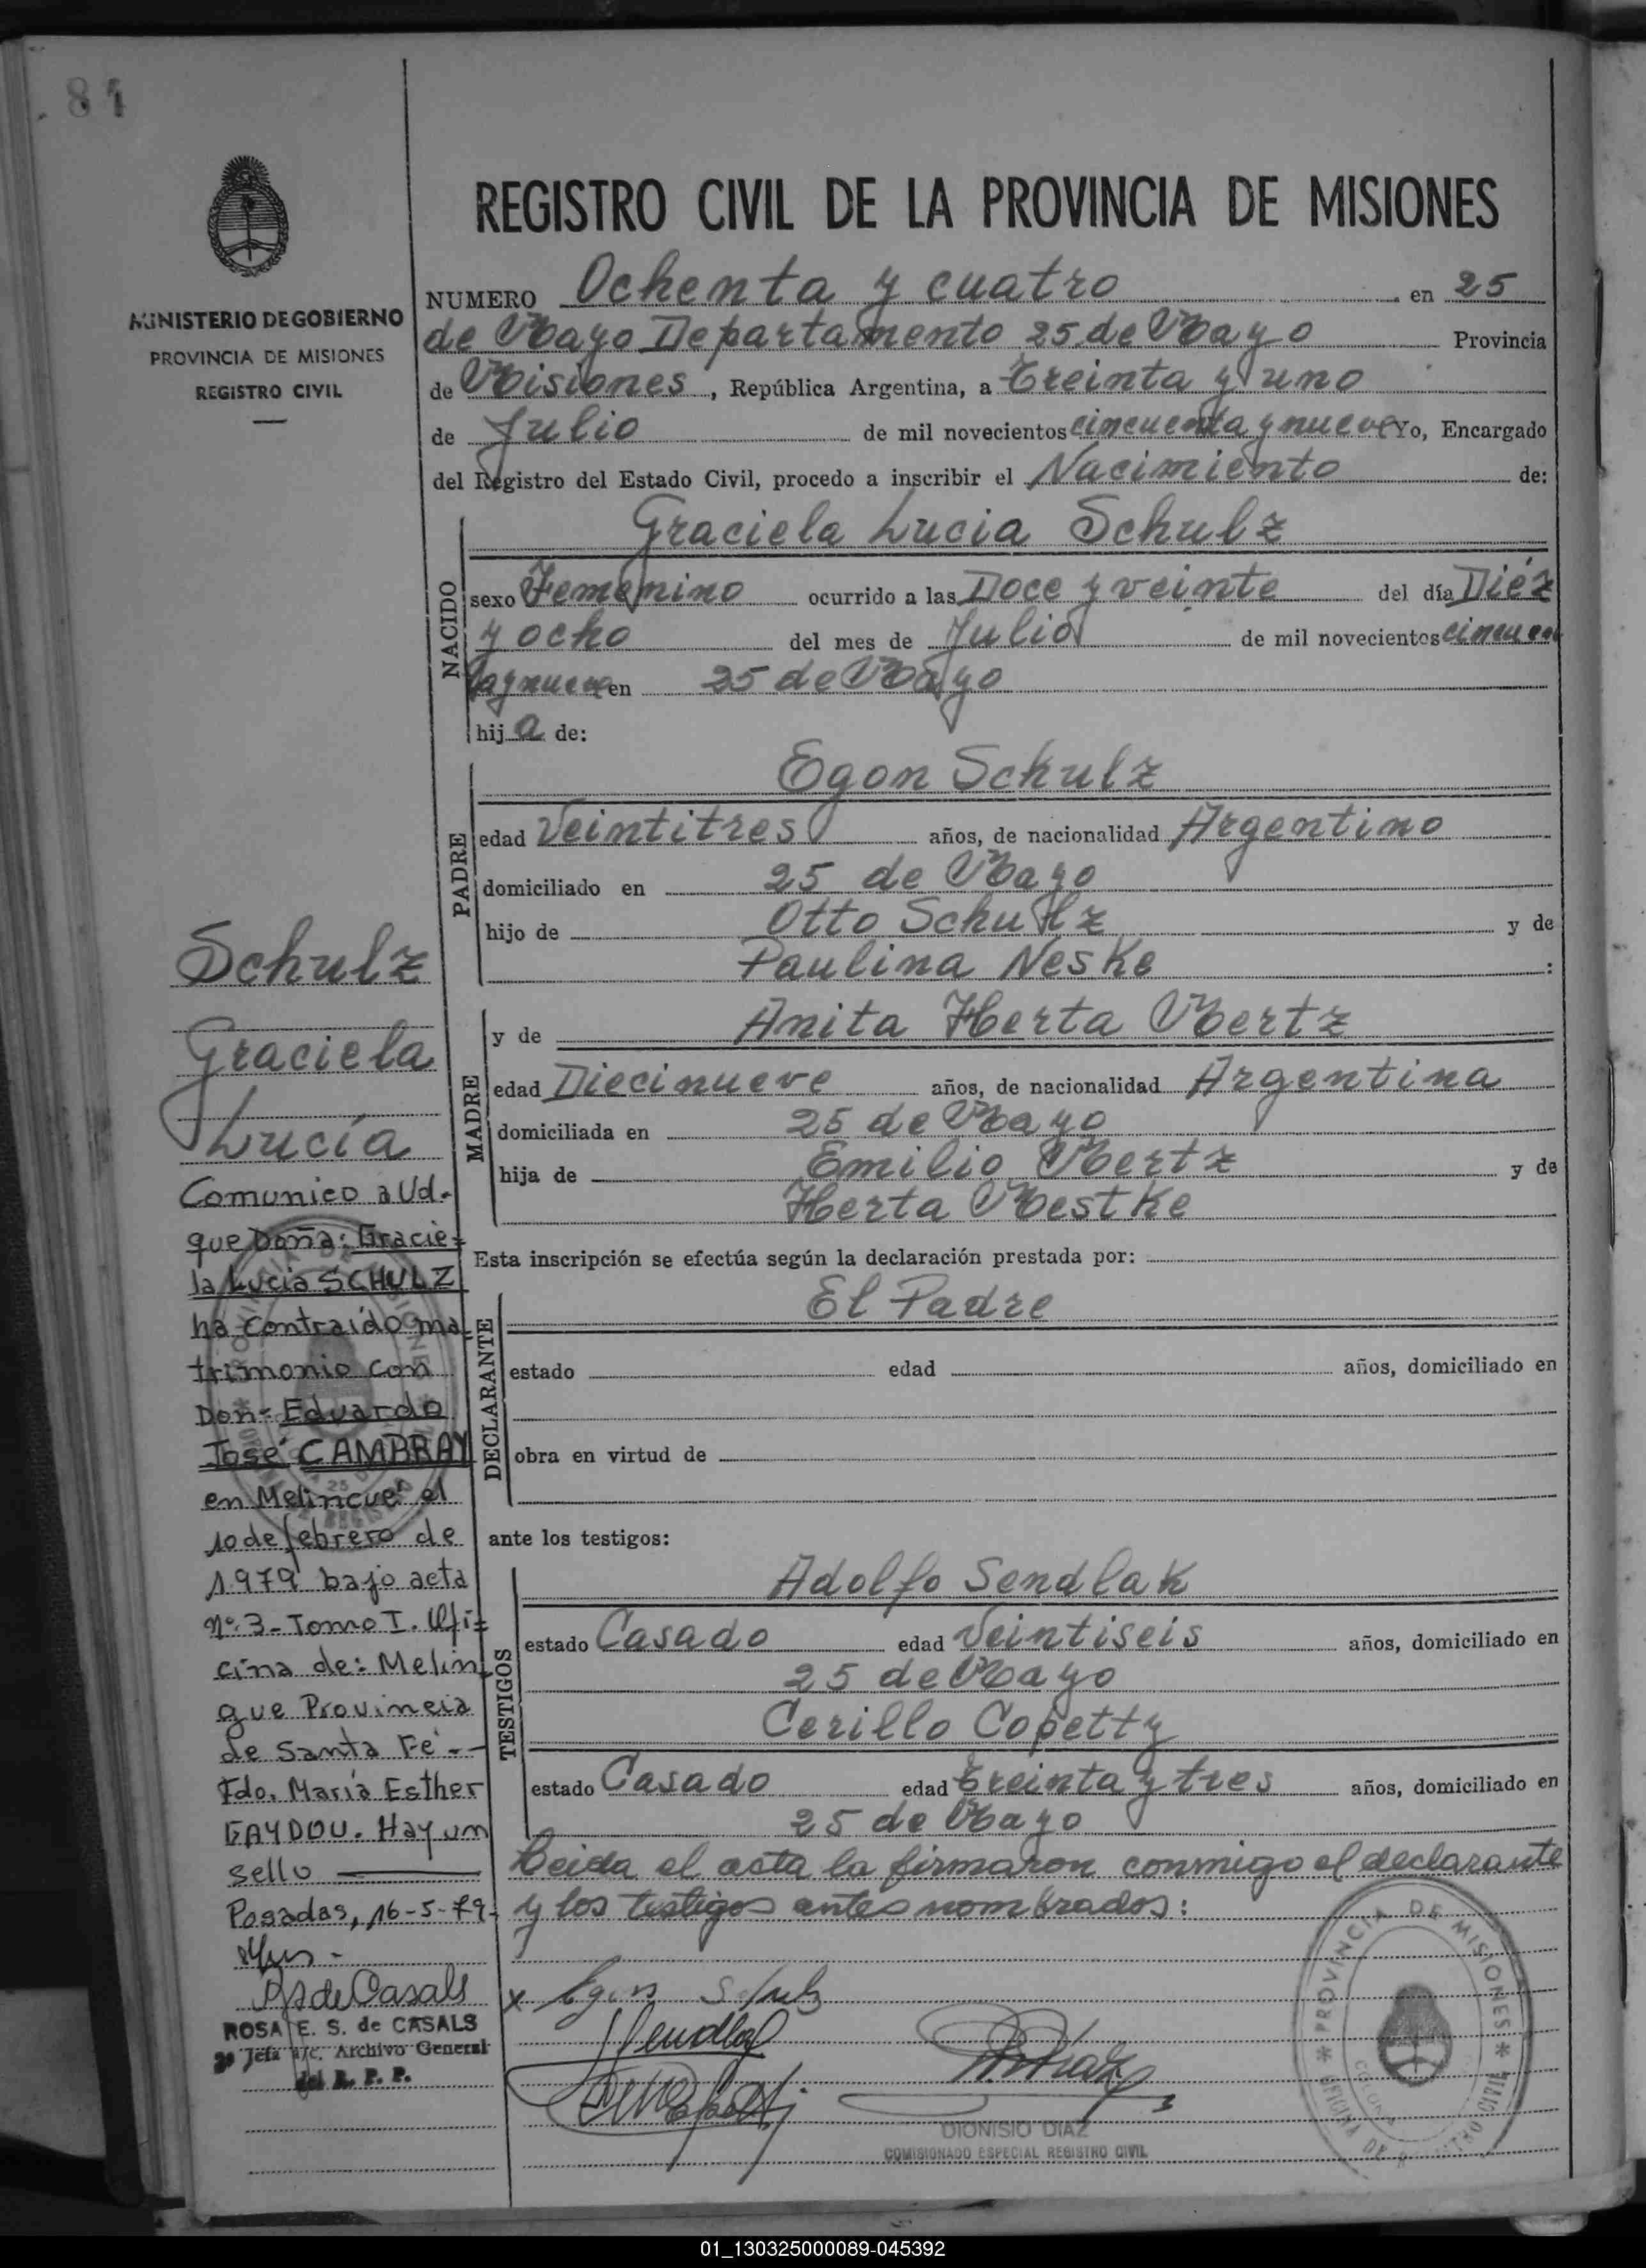 84
MINISTERIO DE GOBIERNO
PROVINCIA DE MISIONES
REGISTRO CIVIL
REGISTRO CIVIL DE LA PROVINCIA DE MISIONES
NUMERO Ochenta y cuatro en 25
de Mayo Departamento 25 de Mayo Provincia
de Misiones, República Argentina, a Treinta y uno
de Julio de mil novecientos cincuenta y nueve Yo, Encargado
del Registro del Estado Civil, procedo a inscribir el Nacimiento de:
NACIDO
Graciela Lucia Schulz
sexo Femenino ocurrido a las Doce y veinte del día Diéz
y ocho del mes de Julio de mil novecientos cincuen
ta y nueve en 25 de Mayo
hija de:
PADRE
Egon Schulz
edad Veintitres años, de nacionalidad Argentino
domiciliado en 25 de Mayo
hijo de Otto Schultz y de
Paulina Neske :
MADRE
y de Anita Herta Mertz
edad Diecinueve años, de nacionalidad Argentina
domiciliada en 25 de Mayo
hija de Emilio Mertz y de
Herta Mestke
Esta inscripción se efectúa según la declaración prestada por:
DECLARANTE
El Padre
estado edad años, domiciliado en
obra en virtud de
ante los testigos:
TESTIGOS
Adolfo Sendlak
estado Casado edad Veintiseis años, domiciliado en
25 de Mayo
Cerillo Copetty
estado Casado edad Treinta y tres años, domiciliado en
25 de Mayo
Leida el acta la firmaron conmigo el declarante
y los testigos antes nombrados:
x Egon Schulz
DIONISIO DIAZ
COMISIONADO ESPECIAL REGISTRO CIVIL
PROVINCIA DE MISIONES
Schulz
Graciela
Lucía
Comunico a Ud.
que Doña: Gracie=
la Lucia SCHULZ
ha contraído ma=
trimonio con
Don- Eduardo
José CAMBRAY
en Melincué el
10 de febrero de
1979 bajo acta
Nº 3- Tomo I. Ofi=
cina de: Melin
que Provincia
de Santa Fé.-
Fdo. María Esther
GAYDOU. Hay un
sello
Posadas, 16-5-79-
ROSA E. S. de CASALS
Jefa a/c. Archivo General
del R. P. P.
01_130325000089-045392